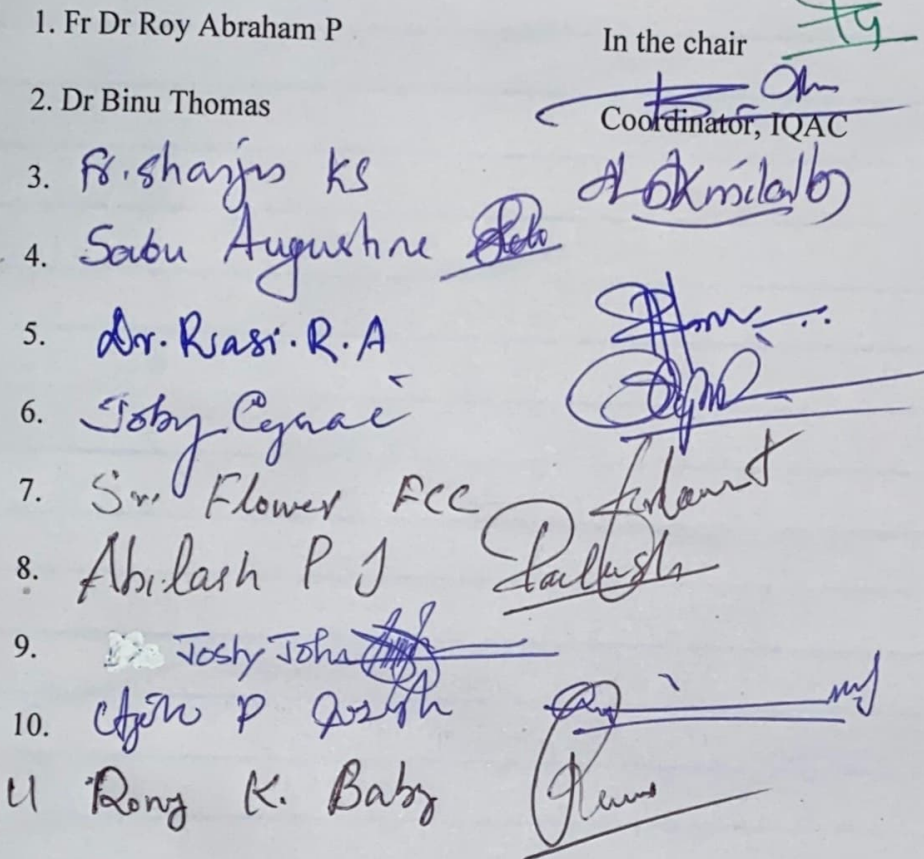 1. Fr Dr Roy Abraham P
In the chair
2. Dr Binu Thomas
Coordinator, IQAC
3. Fr. Sharju KS
4. Sabu Augustine
5. Dr. Rasi. R. A
6. Joby Cyriac
7. Sr. Flower FCC
8. Abilash P J
9. Joshy John
10. P Joseph
11 Rony K. Baby